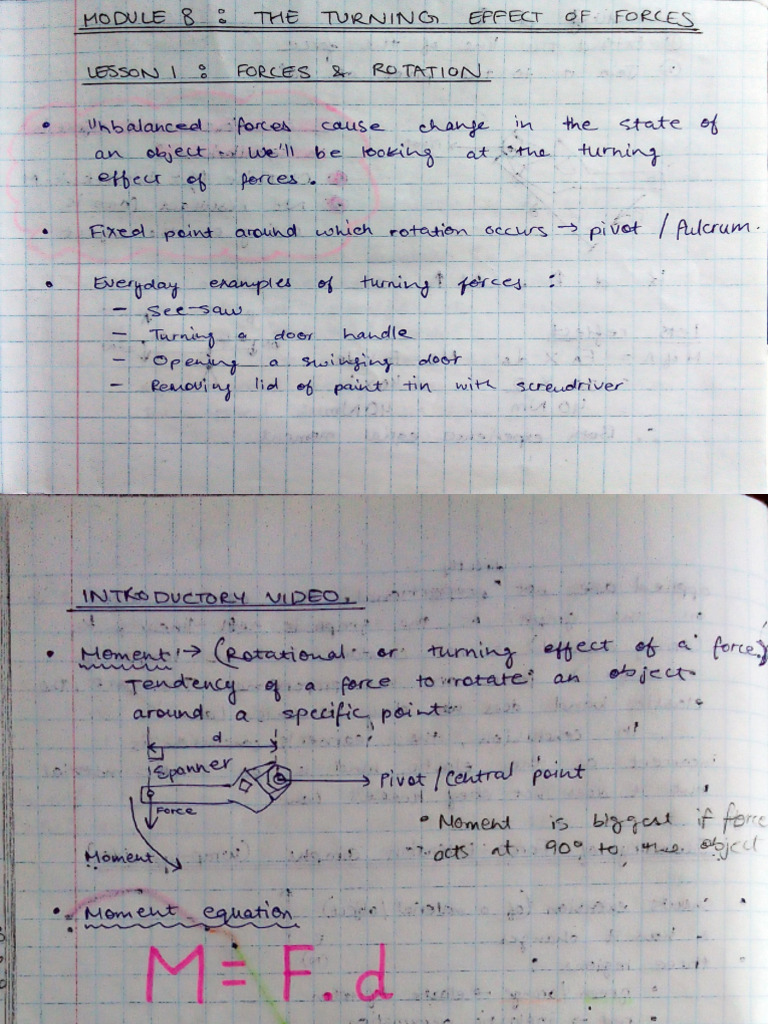 MODULE 8 : THE TURNING EFFECT OF FORCES
LESSON 1 : FORCES & ROTATION
• Unbalanced forces cause change in the state of
an object. We'll be looking at the turning
effect of forces.
• Fixed point around which rotation occurs → pivot / fulcrum.
• Everyday examples of turning forces :
- See-saw
- Turning a door handle
- Opening a swinging door
- Removing lid of paint tin with screwdriver
INTRODUCTORY VIDEO.
• Moment → (Rotational or turning effect of a force)
Tendency of a force to rotate an object
around a specific point
d
Spanner
→ Pivot / Central point
Force
• Moment is biggest if force
acts at 90° to the object
Moment
• Moment equation
M = F . d